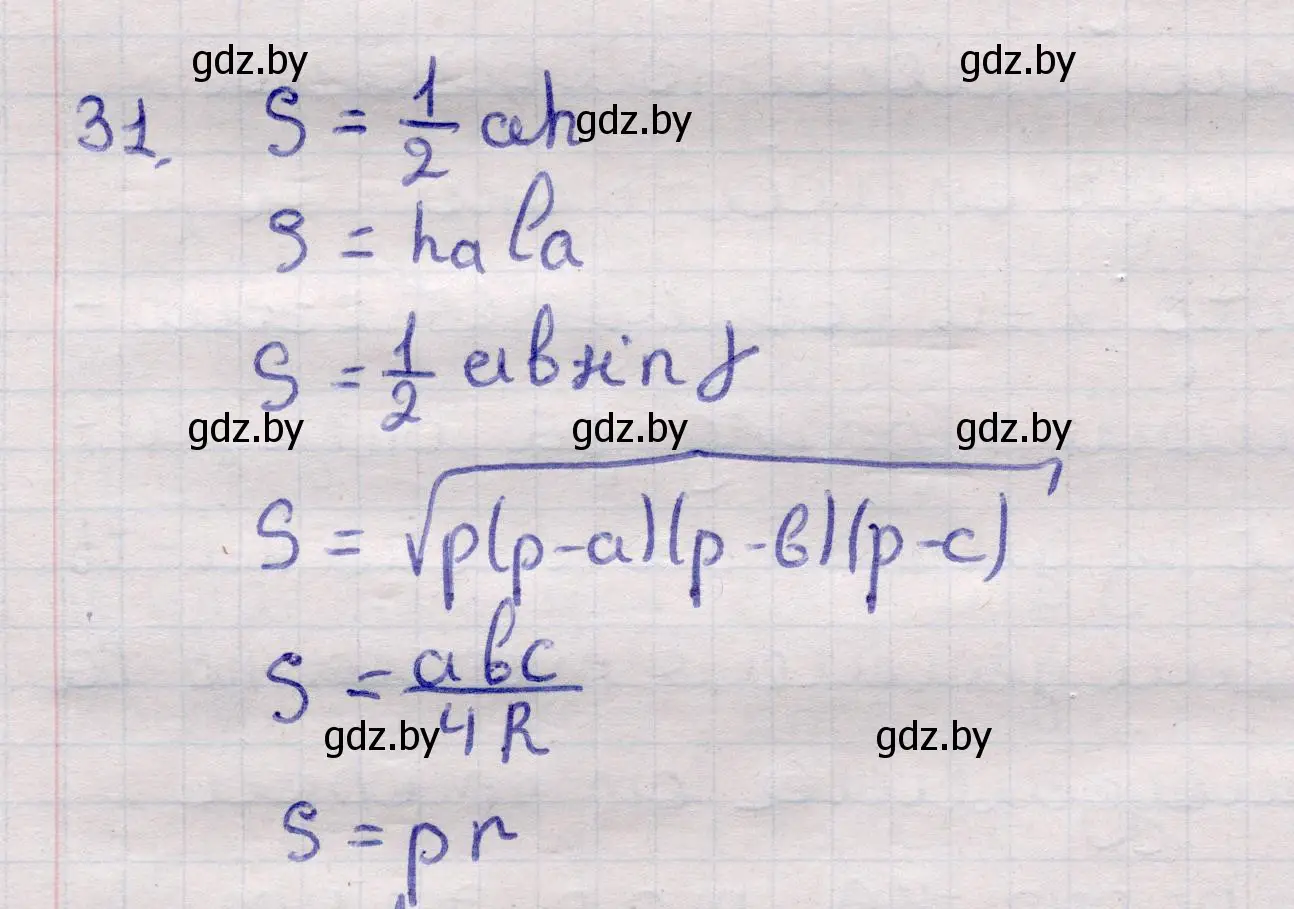 gdz.by gdz.by
31. S = 1/2 ah gdz.by
S = hₐ lₐ
S = 1/2 ab sin γ
gdz.by gdz.by gdz.by
S = √p(p-a)(p-b)(p-c)
S = abc/4R
gdz.by gdz.by
S = pr